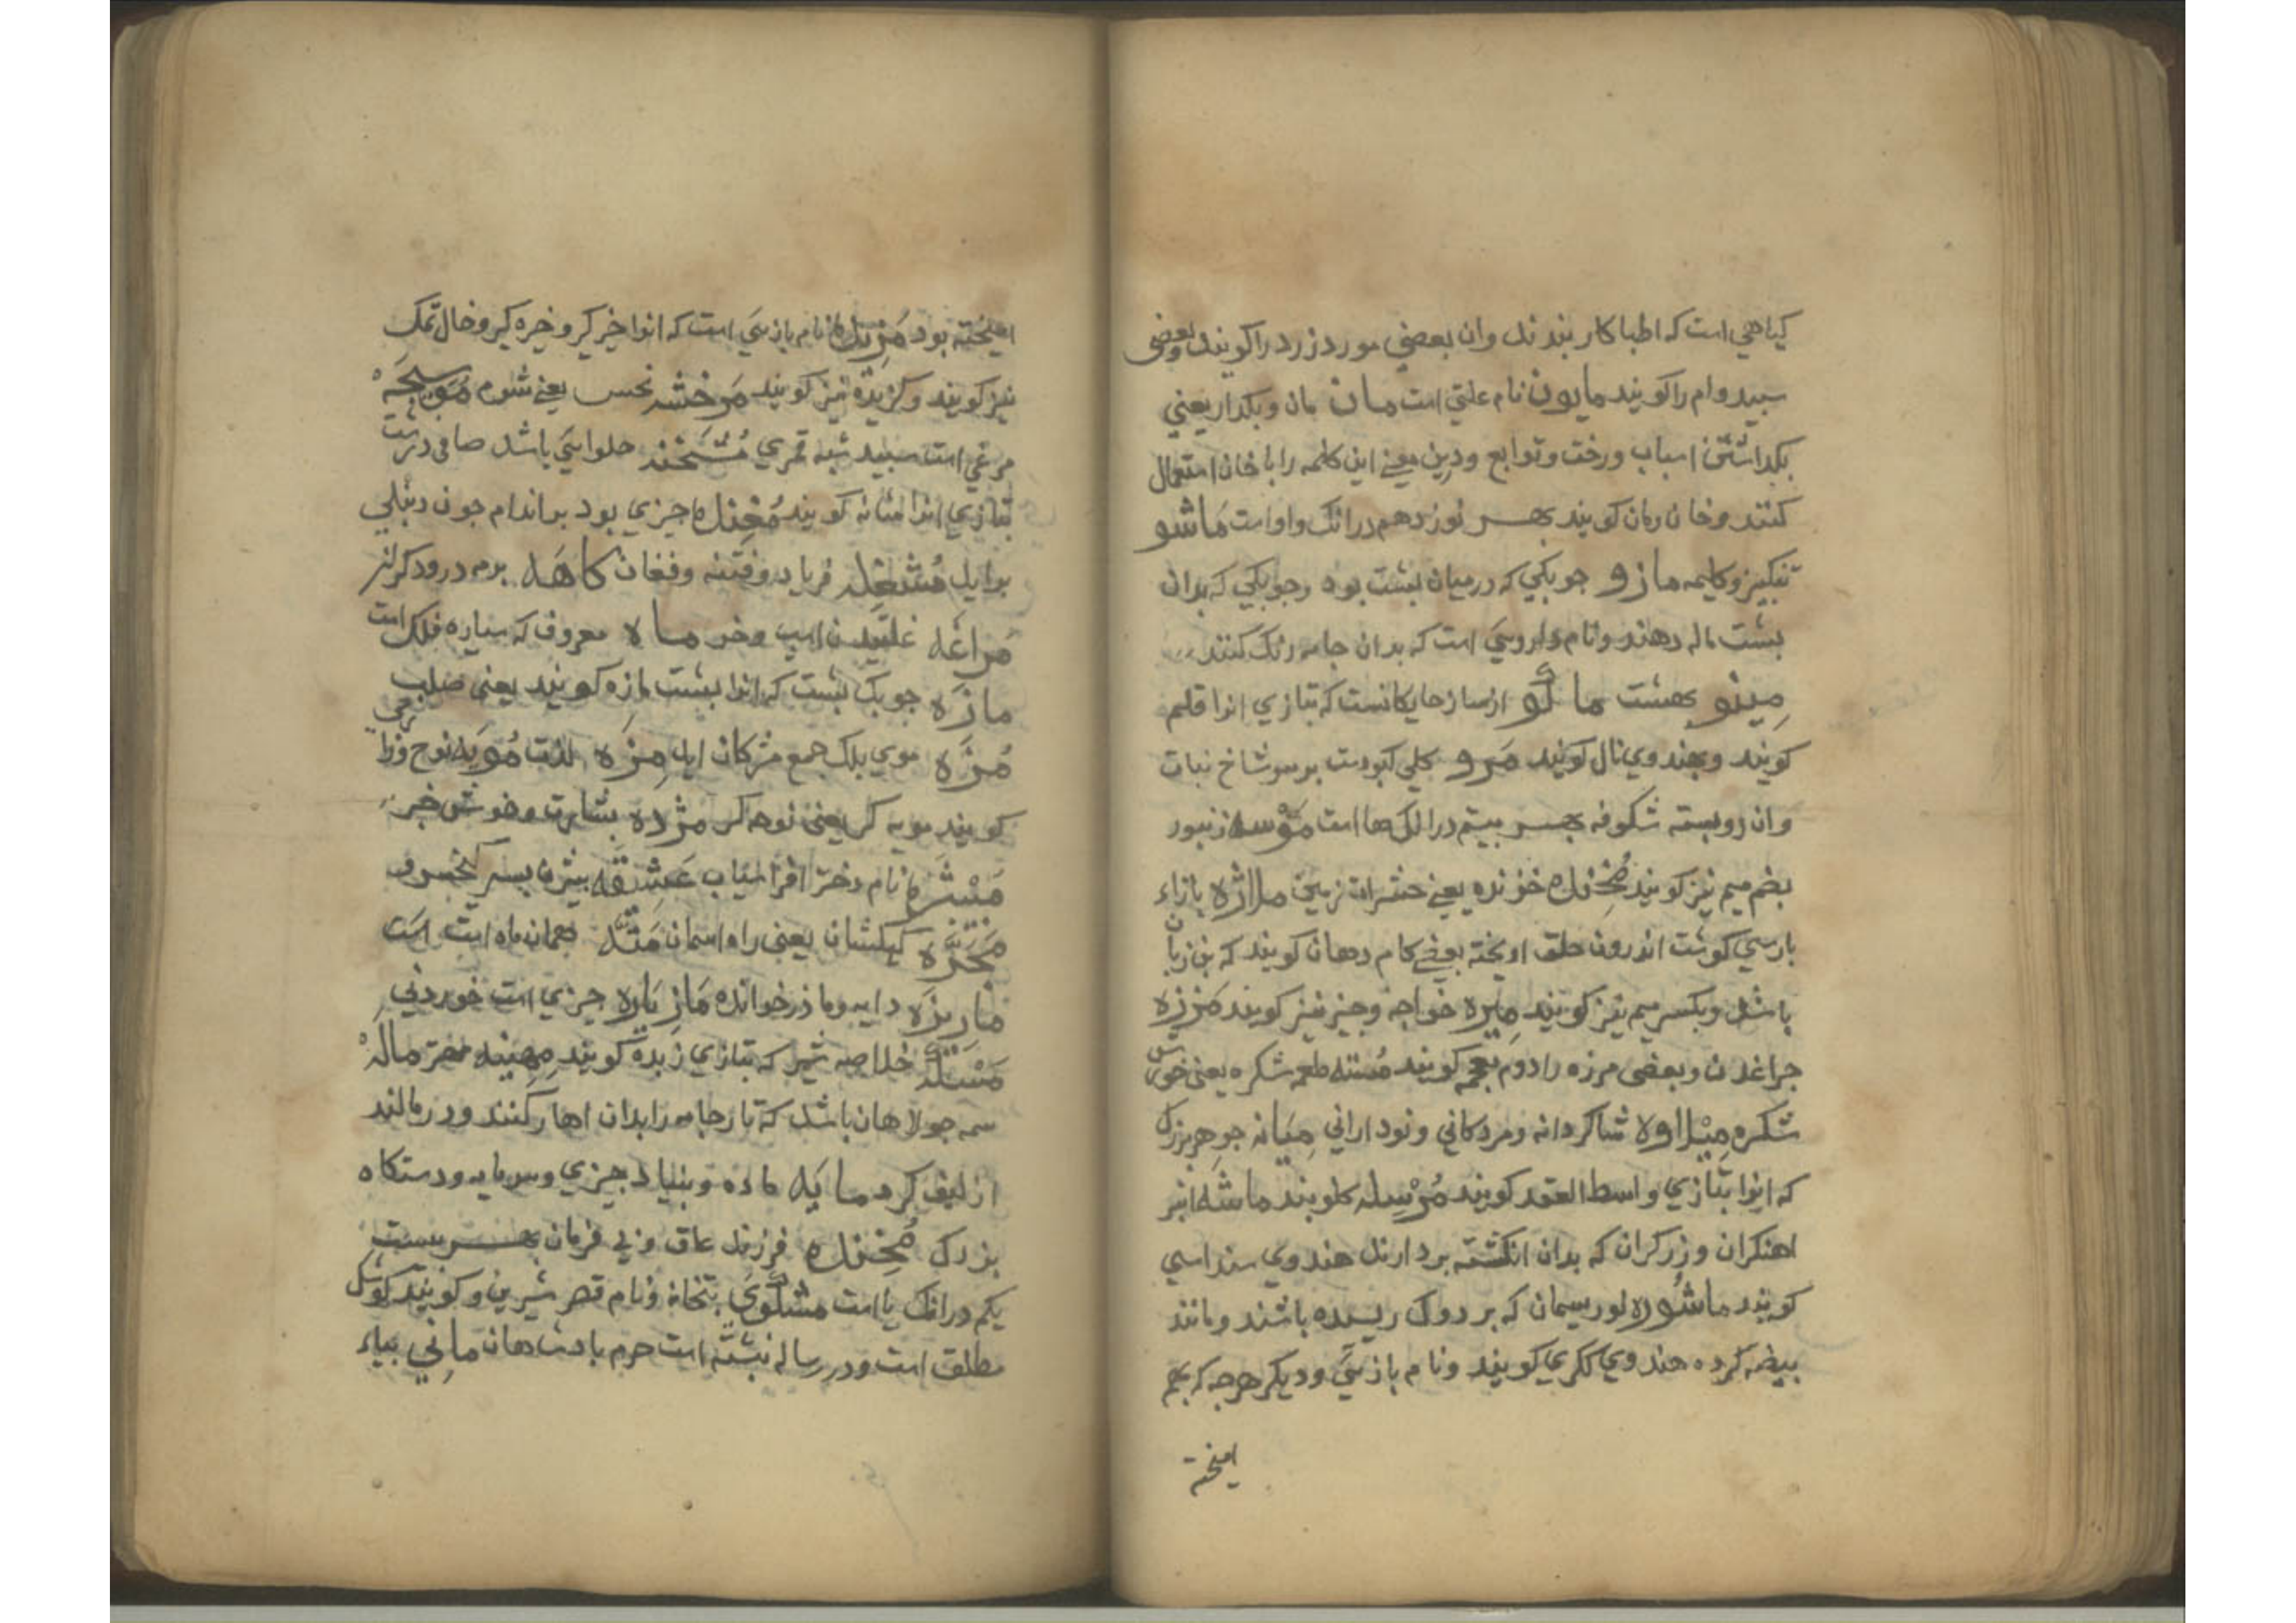 کیاهی است که اطبا کار بندند وان بعضي مورد زرد را کویند وبعضی
سپید وام را کویند مایون نام علتي است مان مان و بکدار یعني
بکداشتن اسباب ورخت وتوابع ودرین معنے این کلمه را با خان استعمال
کنند وخان ومان کویند بهر نوزدهم درانک واو است ماشو
تنکبیز وکلیمه مازو جوبکي که درمیان بشت بود وجوبکي که بدان
بشت ماله دهند ونام داروسي است که بدان جامه رنک کنند
مینو بهشت مالو از ساز حایکانست که بتازي انرا قلم
کویند وبهندوي نال کویند مرو کلي کبودست برسر شاخ نبات
وان روبسته شکوفه بهر بیستم درانک ها است موسه زنبور
بضم میم نیز کویند مخنده خزنده یعنے حشرات زمین ملاژه بازاء
بارسي کوشت اندرون حلق اویخته بعضے کام دهان کویند که بن زبان
باشد وبکسر میم نیز کویند میره خواجه وجیز نیز کویند مزرزه
جراغدن وبعضی مرزه را دوم بعجمه کویند مسته طعمه شکره یعنی خورش
شکره میلاوه شاکردانه ومردکاني ونوداراني میانه جوهر بزرک
که انرا بتازي واسط العقد کویند مرسله کلوبند ماشه انبر
اهنکران وزرکران که بدان انکشته بردارند هندوي سنداسي
کویند ماشوره لور سیمان که بر دوک ریسده باشند ومانند
بیضه کرده هندوي ککري کویند ونام بازیي ودیکر هرجه که بهم
امیخته
امیخته بود مزنده نام بازیي است که انرا خر کیر وخره کیر وخال نمک
نیز کویند وکزیده نیز کویند مرخشه نحس یعنے شوم موسیجه
مرغي است سبید شبه قمري مشخنه حلوایي باشد صافی درشت
بتازي انرا مشانه کویند مخنده جیزي بود براندام جون دنبلي
برایل مشغله فریاد وفتنه وفغان کاهه برمه درودکران
مراغه غلتیدن اسب وخر ماه معروف که ستاره فلک است
مازه جوبک بشت که انرا بشت مازه کویند یعنی صلب
مژه موي بلک جمع مژکان اید مزه لذت مویه نوح وزاري
کویند مویه کر یعنی نوحه کر مژده بشارت وخوش خبر
منیشره نام دختر افراسیاب عشقه بیژن بسر کیخسرو
مجره کهکشان یعنی راه اسمان مثله بهمان ماه است است
ماریزه دایه ومادر خوانده مازیاره جیزي است خوردني
مسله خلاصه شیر که بتازي زبده کویند مهینه مهتر ماله
سمه جولاهان باشد که تار جامه را بدان اهار کنند ودر مالند
از لیف کرد مایه ماده وبنیاد جیزي وسرمایه ودستکاه
بزرک مخنده فرزند عاق وبي فرمان بهر بیست
یکم درانک یا است مشکوي بتخانه ونام قصر شیرین وکویند کوشک
مطلق است ودر رساله نبشته است حرم بادشاهان ماني بیاء